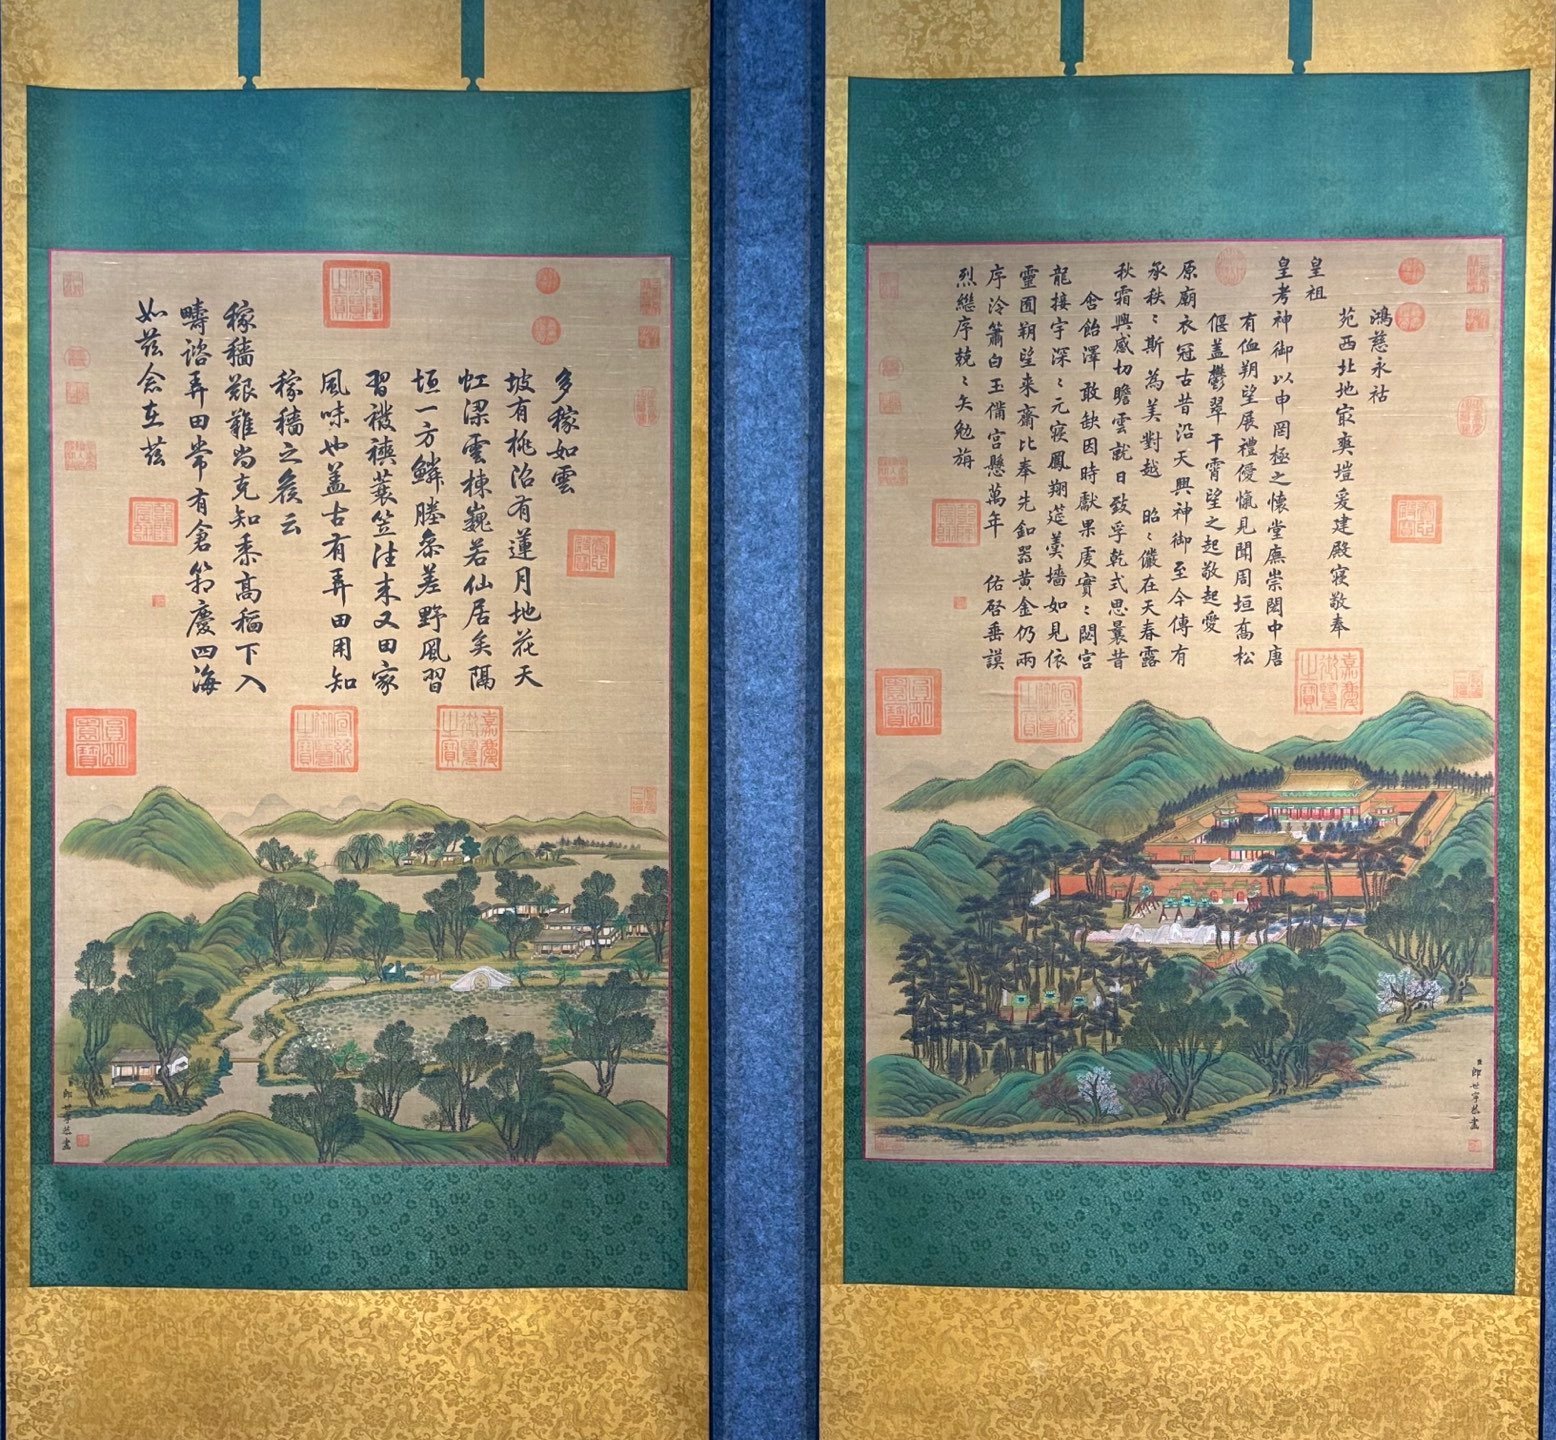 鴻慈永祜
苑西北地最爽塏爰建殿寢敬奉
皇祖
皇考神御以申罔極之懷堂廡崇閎中唐
有侐朔望展禮優愾見聞周垣喬松
偃蓋鬱翠干霄望之起敬起愛
原廟衣冠古昔沿天興神御至今傳有
承秩〻斯為美對越 昭〻儼在天春露
秋霜興感切瞻雲就日致孚乾式思曩昔
含飴澤敢缺因時獻果虔實〻閟宮
龍接宇深〻元寢鳳翔筵羹墻如見依
靈囿朔望來齋比奉先釦器黃金仍兩
序泠簫白玉備宮懸萬年 佑啓垂謨
烈繼序兢〻矢勉旃
嘉慶御覽之寶
宣統御覽之寶
臣郎世寧恭畫
多稼如雲
坡有桃沼有蓮月地花天
虹梁雲棟巍若仙居矣隔
垣一方鱗塍參差野風習
習襏襫蓑笠往来又田家
風味也盖古有弄田用知
稼穡之候云
稼穡艱難尚克知黍高稲下入
疇諮弄田常有倉箱慶四海
如茲念在茲
乾隆御覽之寶
嘉慶御覽之寶
宣統御覽之寶
臣郎世寧恭畫